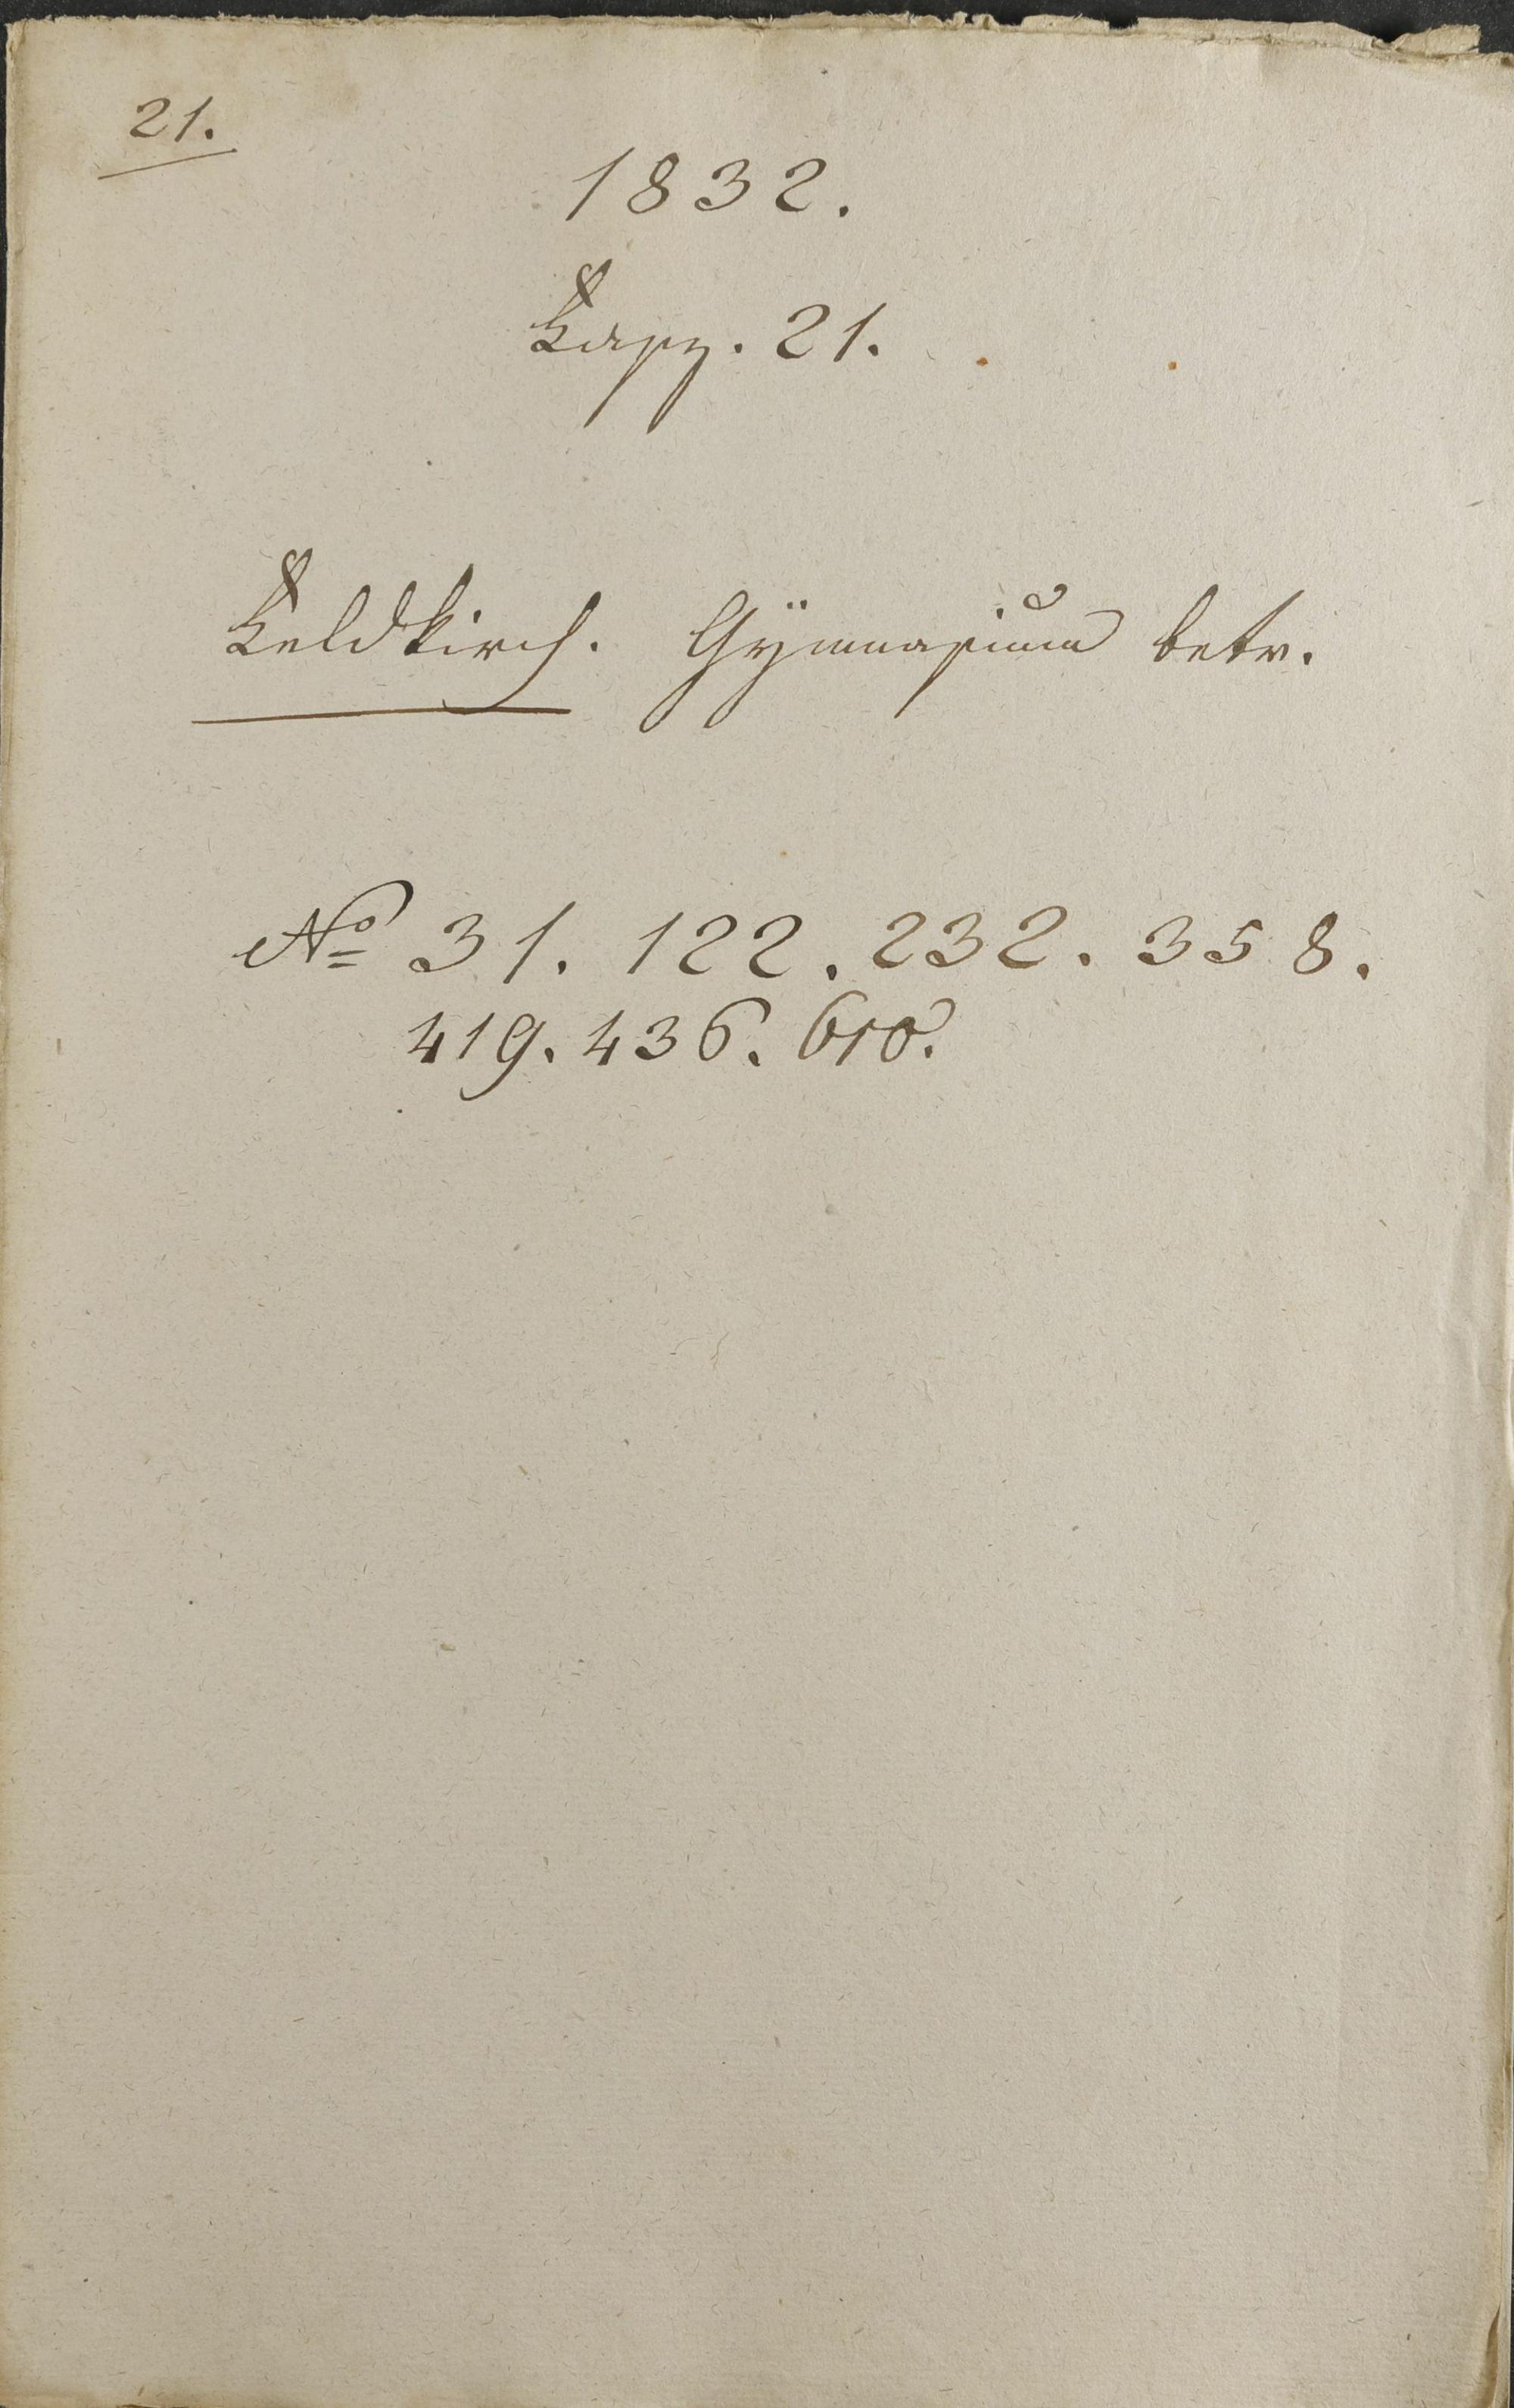 21.
1832.
Fasz. 21.
Feldkirch. Gÿmnasium betr.
No 31. 122. 232. 358.
419. 436. 610.